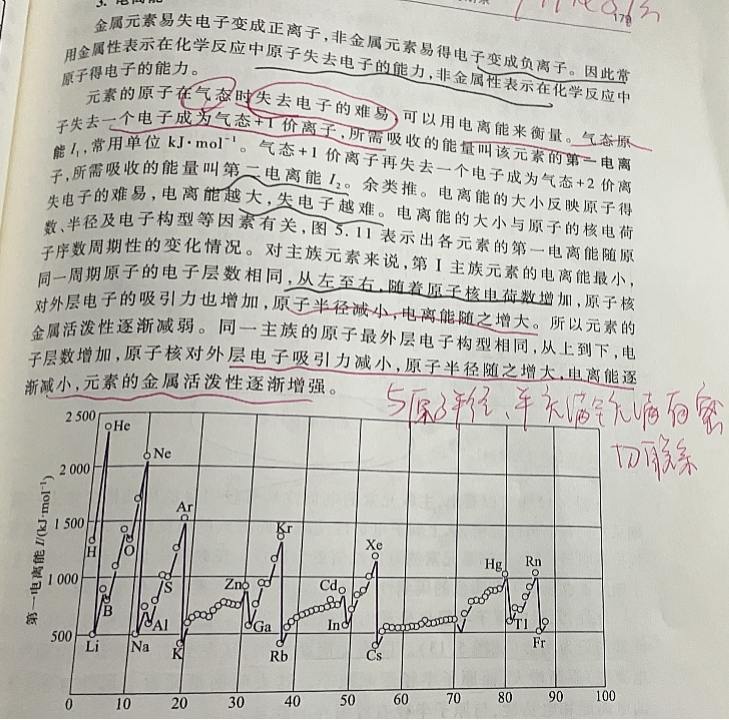 3. 电离能
179
金属元素易失电子变成正离子,非金属元素易得电子变成负离子。因此常
用金属性表示在化学反应中原子失去电子的能力,非金属性表示在化学反应中
原子得电子的能力。
元素的原子在气态时失去电子的难易,可以用电离能来衡量。气态原
子失去一个电子成为气态+1价离子,所需吸收的能量叫该元素的第一电离
能 I₁,常用单位 kJ·mol⁻¹。气态+1价离子再失去一个电子成为气态+2价离
子,所需吸收的能量叫第二电离能 I₂。余类推。电离能的大小反映原子得
失电子的难易,电离能越大,失电子越难。电离能的大小与原子的核电荷
数、半径及电子构型等因素有关,图 5.11 表示出各元素的第一电离能随原
子序数周期性的变化情况。对主族元素来说,第 I 主族元素的电离能最小,
同一周期原子的电子层数相同,从左至右,随着原子核电荷数增加,原子核
对外层电子的吸引力也增加,原子半径减小,电离能随之增大。所以元素的
金属活泼性逐渐减弱。同一主族的原子最外层电子构型相同,从上到下,电
子层数增加,原子核对外层电子吸引力减小,原子半径随之增大,电离能逐
渐减小,元素的金属活泼性逐渐增强。
与原子半径、半充满全充满有密
切联系
第一电离能 I/(kJ·mol⁻¹)
2 500
2 000
1 500
1 000
500
He
Ne
Ar
Kr
Xe
H
O
S
B
Al
Zn
Ga
Cd
In
Hg
Rn
Tl
Li
Na
K
Rb
Cs
Fr
0 10 20 30 40 50 60 70 80 90 100